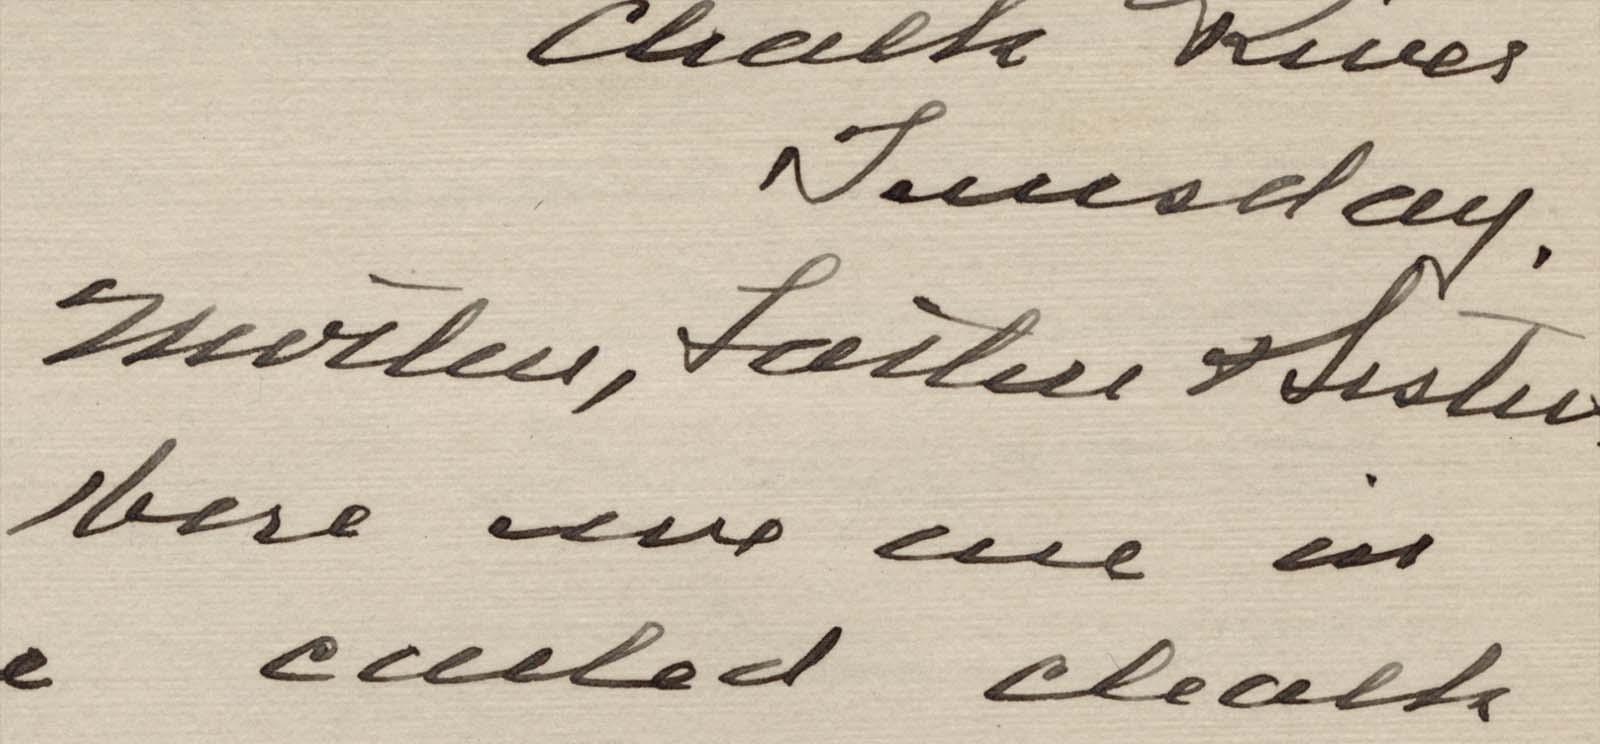 Chalk River
Tuesday.
Mother, Father & Sister.
Here we are in
e called chalk